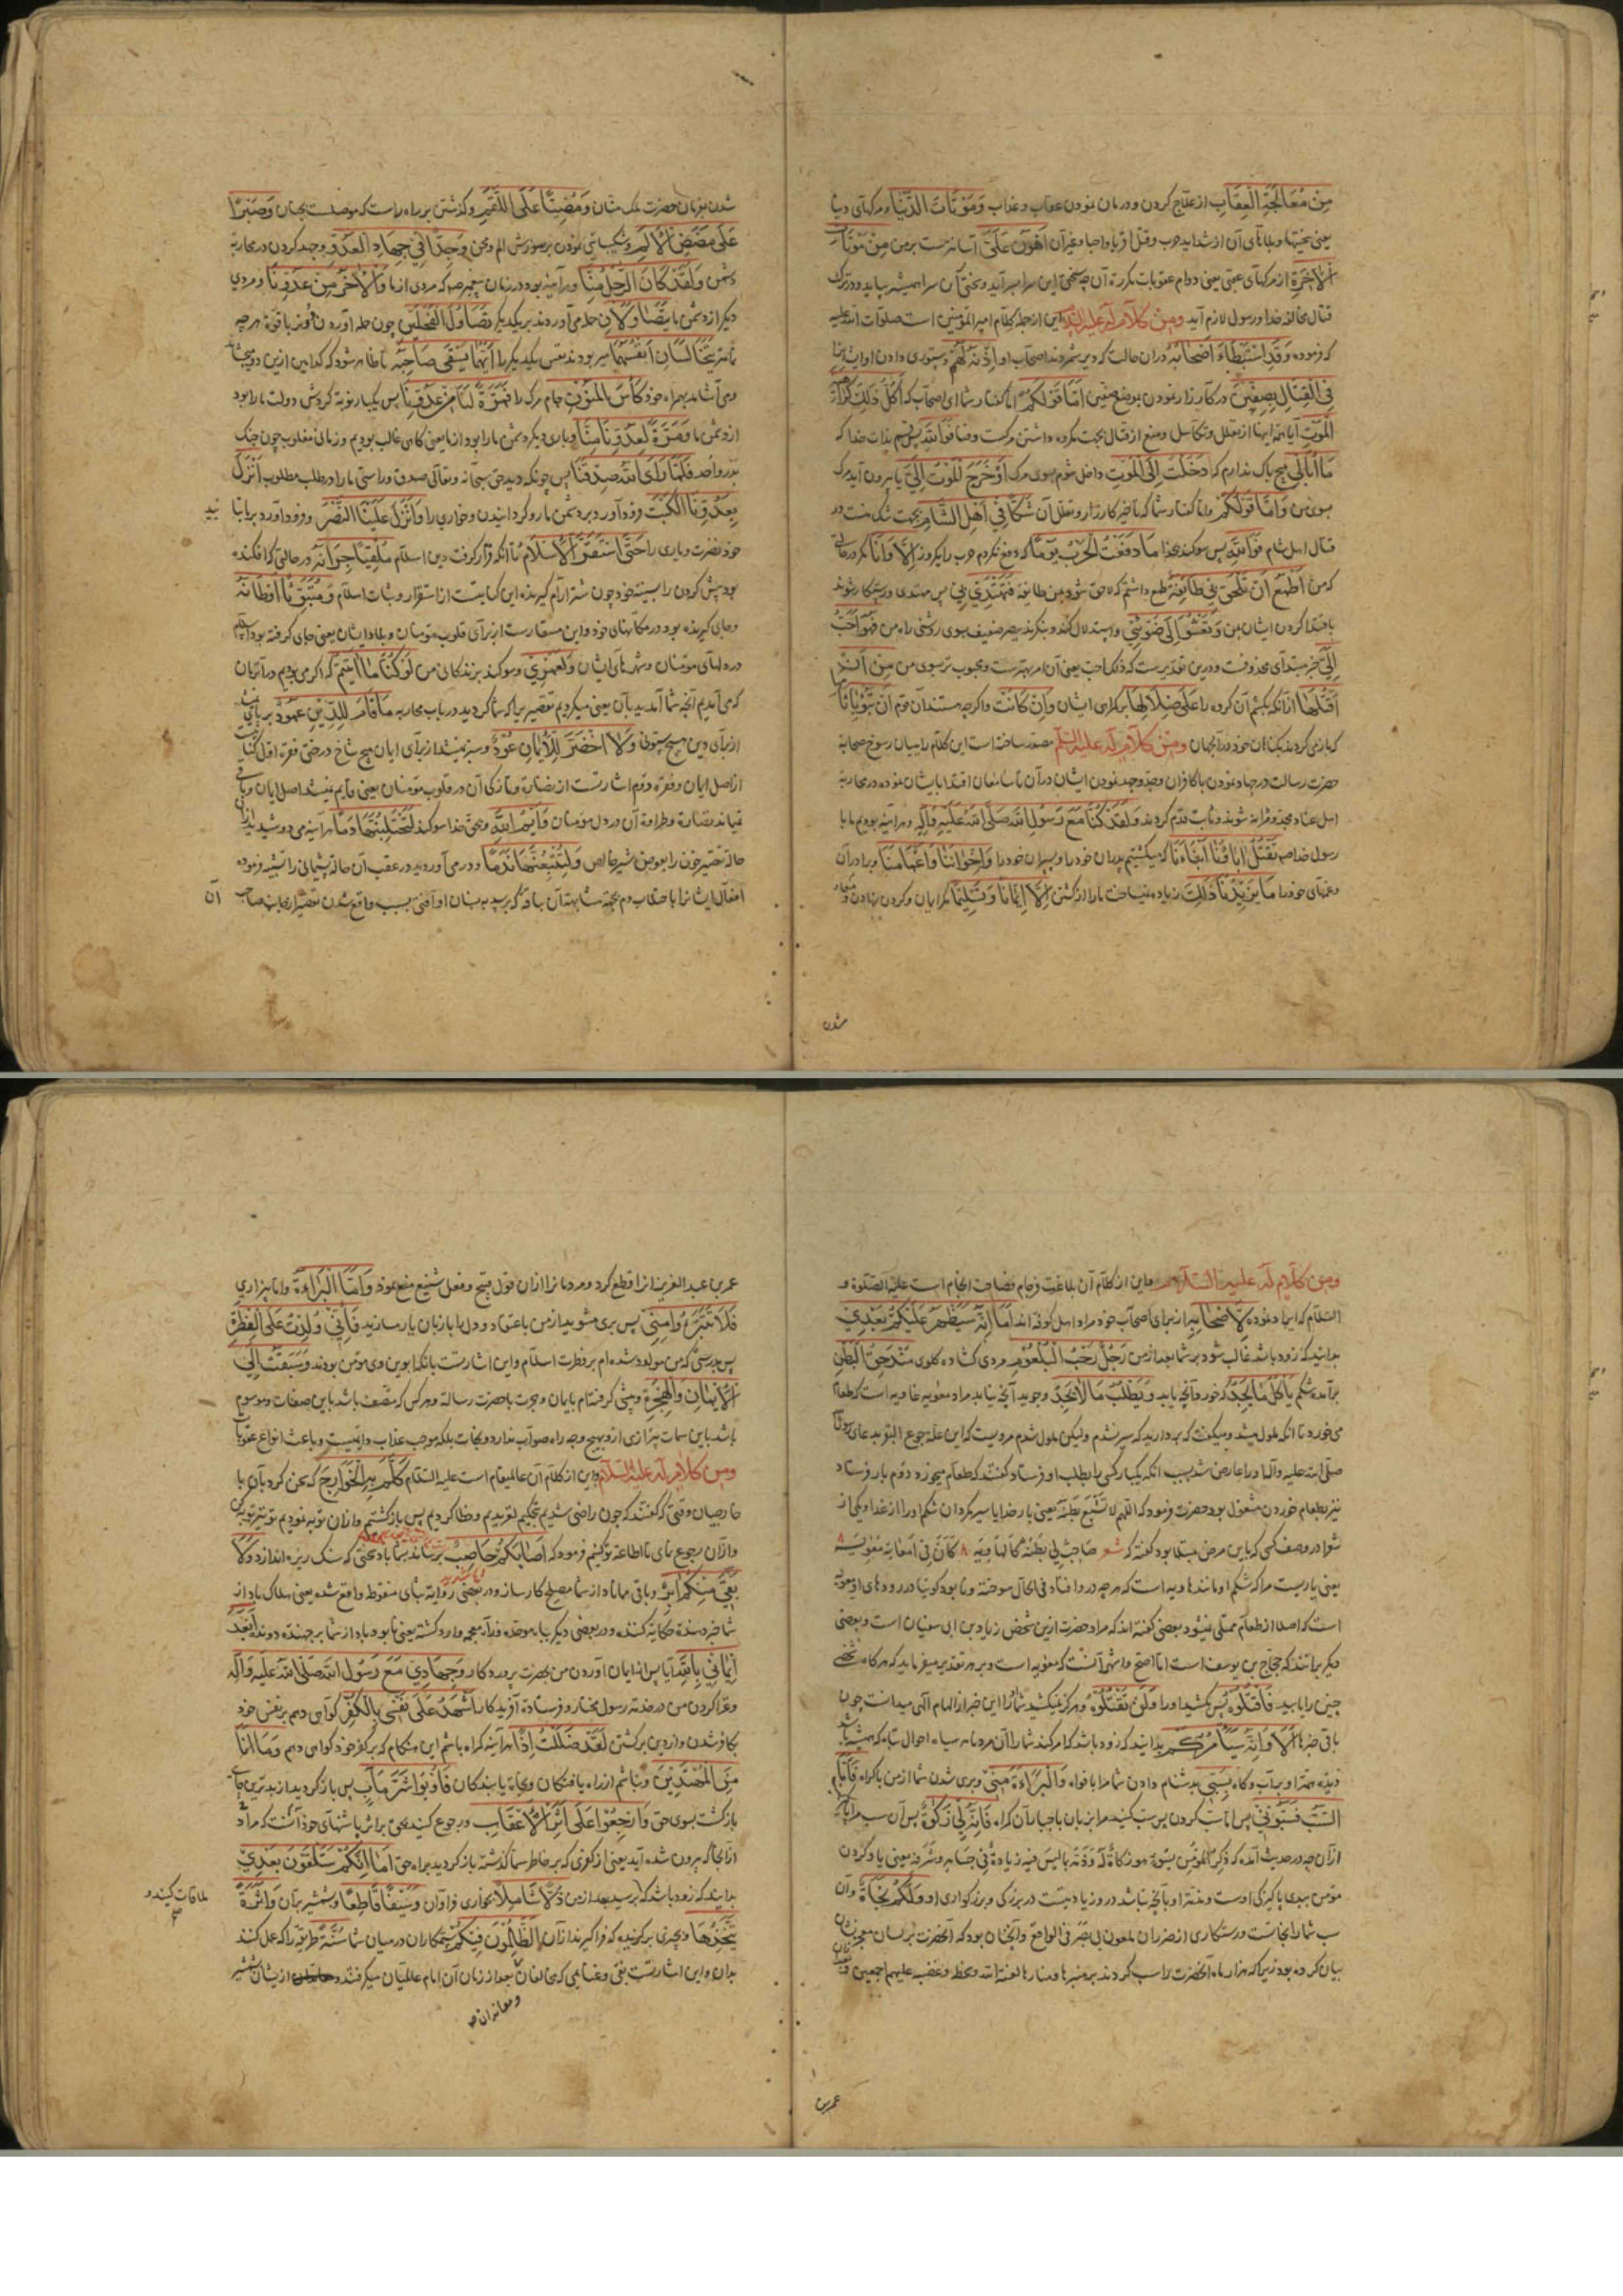 مِنْ مُعَالَجَةِ الْعِقَابِ از علاج کردن و درمان نمودن عقاب و عذاب وَمَوْتَاتُ الدُّنْيَا و مرگهای دنیا
یعنی سختیها و بلاهای آن از شداید حرب و قتل اقربا و احبا و غیر آن اَهْوَنُ عَلَيَّ آسانترست بر من مِنْ مَوْتَاتِ
الْآخِرَةِ از مرگهای عقبی یعنی دوام عقوبات مکرره آن چه سختی این سرا بسر آید و سختی آن سرا همیشه بپاید و در ترک
قتال مخالفه خدا و رسول لازم آید وَمِنْ كَلَامٍ لَهُ عَلَيْهِ السَّلَامُ این از جمله کلام امیر المؤمنین است صلوات الله علیه
که فرموده وَقَدِ اسْتَبْطَاَ اَصْحَابُهُ در آن حالت که دیر شمردند اصحاب او اِذْنَهُ لَهُمْ دستوری دادن او ایشانرا
فِي الْقِتَالِ بِصِفِّينَ در کارزار نمودن بموضع صفین اَمَّا قَوْلُكُمْ اما گفتار شما ای اصحاب که اَكُلَّ ذٰلِكَ كَرَاهِيَةَ
الْمَوْتِ آیا همه اینها از تعلل و تکاسل و منع از قتال بجهت مکروه داشتن مرگست و فنا فَوَاللّٰهِ پس قسم بذات خدا که
مَا اُبَالِي هیچ باک ندارم که دَخَلْتُ اِلَى الْمَوْتِ داخل شوم بسوی مرگ اَوْ خَرَجَ الْمَوْتُ اِلَيَّ یا بیرون آید مرگ
بسوی من وَاَمَّا قَوْلُكُمْ و اما گفتار شما که تاخیر کارزار و تعلل آن شَكًّا فِي اَهْلِ الشَّامِ بجهت شک منست در
قتال اهل شام فَوَاللّٰهِ پس سوگند بخدا مَا دَفَعْتُ الْحَرْبَ يَوْمًا که دفع نکردم حرب را یکروز اِلَّا وَاَنَا مگر در حالتی
که من اَطْمَعُ اَنْ تَلْحَقَ بِي طَائِفَةٌ طمع داشتم که لاحق شود بمن طایفه فَتَهْتَدِيَ بِي پس مهتدی و رستگار شوند
باقتدا کردن ایشان بمن وَتَعْشُوَ اِلٰى ضَوْئِي و استدلال کنند و بنگرند ببصر ضعیف بسوی روشنی راه من فَهُوَ اَحَبُّ
اِلَيَّ خبر مبتدای محذوفست و درین تقدیرست که ذلک احب یعنی آن امر بهترست و محبوب‌تر بسوی من مِنْ اَنْ
اَقْتُلَهَا از آنکه بکشم آن گروه را عَلٰى ضَلَالِهَا بر گمراهی ایشان وَاِنْ كَانَتْ و اگر چه هستند آن قوم اَنْ تَبُوءَ بِآثَامِهَا
که باز می‌گردند بگناهان خود در آنجهان وَمِنْ كَلَامٍ لَهُ عَلَيْهِ السَّلَامُ مصدر ساخته است این کلام را ببیان رسوخ صحابه
حضرت رسالت در جهاد نمودن با کافران و جد و جهد نمودن ایشان در آن تا سامعان اقتدا بایشان نموده در محاربه
اهل عناد مجد و مرابط شوند و ثابت قدم گردند وَلَقَدْ كُنَّا مَعَ رَسُولِ اللّٰهِ صَلَّى اللّٰهُ عَلَيْهِ وَآلِهِ و هر آینه بودیم ما با
رسول خدا صه نَقْتُلُ آبَاءَنَا وَاَبْنَاءَنَا که میکشتیم پدران خود را و پسران خود را وَاِخْوَانَنَا وَاَعْمَامَنَا و برادران
و عمهای خود را مَا يَزِيدُنَا ذٰلِكَ زیاده نمیساخت ما را از کشتن اِلَّا اِيمَانًا وَتَسْلِيمًا مگر ایمان و گردن نهادن و منقاد
شدن
شدن بفرمان حضرت ملک منان وَمُضِيًّا عَلَى اللَّقَمِ و گذشتن بر راه راست که موصلست بجنان وَصَبْرًا
عَلٰى مَضَضِ الْاَلَمِ و شکیبائی نمودن بر سوزش الم و محن وَجِدًّا فِي جِهَادِ الْعَدُوِّ و جهد کردن در محاربه
دشمن وَلَقَدْ كَانَ الرَّجُلُ مِنَّا و هر آینه بود در زمان پیغمبر صه که مردی از ما وَالْآخَرُ مِنْ عَدُوِّنَا و مردی
دیگر از دشمن ما يَتَصَاوَلَانِ حمله می‌آوردند بر یکدیگر تَصَاوُلَ الْفَحْلَيْنِ چون حمله آوردن دو فحل با قوة هر چه
تمامتر يَتَخَالَسَانِ اَنْفُسَهُمَا می‌ربودند نفس یکدیگر را اَيُّهُمَا يَسْقِي صَاحِبَهُ تا ظاهر شود که کدامین ازین دو میچشاند
و می‌آشاماند بهمراه خود كَأْسَ الْمَنُونِ جام مرگ را فَمَرَّةً لَنَا مِنْ عَدُوِّنَا پس یکبار نوبة گردش دولت ما را بود
از دشمن ما وَمَرَّةً لِعَدُوِّنَا مِنَّا و باری دیگر دشمن ما را بود از ما یعنی گاهی غالب بودیم و زمانی مغلوب چون جنک
بدر و احد فَلَمَّا رَاَى اللّٰهُ صِدْقَنَا پس چونکه دید حق سبحانه و تعالی صدق و راستی ما را در طلب مطلوب اَنْزَلَ
بِعَدُوِّنَا الْكَبْتَ فرود آورد بر دشمن ما رو گردانیدن و خواری را وَاَنْزَلَ عَلَيْنَا النَّصْرَ و فرود آورد بر ما
خود نصرت و یاری را حَتّٰى اسْتَقَرَّ الْاِسْلَامُ تا آنکه قرار گرفت دین اسلام مُلْقِيًا جِرَانَهُ در حالتی که افکنده
بود پیش گردن را بسینه خود چون شتر آرام گیرنده این کنایتست از استقرار و ثبات اسلام وَمُتَبَوِّئًا اَوْطَانَهُ
و جای گیرنده بود در مکانهای خود و این مستعارست از برای قلوب مؤمنان و بلاد ایشان یعنی جای گرفته بود اسلام
در دلهای مؤمنان و شهرهای ایشان وَلَعَمْرِي و سوگند بزندگانی من لَوْ كُنَّا نَاْتِي مَا اَتَيْتُمْ که اگر می‌بودیم در آنزمان
که می‌آمدیم آنچه شما آمدید بآن یعنی میکردیم تقصیر چنانکه شما کردید در باب محاربه مَا قَامَ لِلدِّينِ عَمُودٌ بر پای نمیشد
از برای دین هیچ ستونی وَلَا اخْضَرَّ لِلْاِيمَانِ عُودٌ و سبز نمیشد از برای ایمان هیچ شاخ درختی فقره اول کنایتست
از اصل ایمان و فقره دوم اشارتست از نضارت و تازگی آن در قلوب مؤمنان یعنی قایم نمیشد اصل ایمان و باقی
نمیماند نضارة و طراوة آن در دل مومنان وَاَيْمُ اللّٰهِ و بحق خدا سوگند لَتَحْتَلِبُنَّهَا دَمًا هر آینه می‌دوشید از آن
حالة تقصیر خون را بعوض شیر خالص وَلَتُتْبِعُنَّهَا نَدَمًا و در می‌آورید در عقب آن حالة پشیمانی را تشبیه فرموده
افعال ایشانرا باحتلاب دم بجهة مشابهة آن بناقه که برسد به پستان او آفتی بسبب واقع شدن تقصیر از جانب صاحب
آن
وَمِنْ كَلَامٍ لَهُ عَلَيْهِ السَّلَامُ و این از کلام آن بلاغت فرجام فصاحت انجام است علیه الصلوة و
السلام که ایراد نموده لِاَصْحَابِهِ از برای اصحاب خود مراد اهل کوفه‌اند اَمَا اِنَّهُ سَيَظْهَرُ عَلَيْكُمْ بَعْدِي
بدانید که زود باشد غالب شود بر شما بعد از من رَجُلٌ رَحْبُ الْبُلْعُومِ مردی گشاده گلوی مُنْدَحِقُ الْبَطْنِ
برآمده شکم يَأْكُلُ مَا يَجِدُ که خورد آنچه یابد وَيَطْلُبُ مَا لَا يَجِدُ و جوید آنچه نیابد مراد معویه غاویه است که طعام
می‌خورد تا آنکه ملول میشد و میگفت که بردارید که سیر نشدم ولیکن ملول شدم مرویست که این علة جوع البقر بدعای رسول
صلی الله علیه و آله او را عارض شد بسبب آنکه یکبار کسی را بطلب او فرستاد گفتند که طعام میخورد دوم بار فرستاد
نیز بطعام خوردن مشغول بود حضرت فرمود که اللهم لا تشبع بطنه یعنی بار خدایا سیر مگردان شکم او را از غذا و یکی از
شعرا در وصف کسی که باین مرض مبتلا بود گفته که شعر صاحِبٌ لِي بَطْنُهُ كَالْهَاوِيَة ۸ كَاَنَّ فِي اَمْعَائِهِ مُعٰوِيَة
یعنی یاریست مرا که شکم او مانند هاویه است که هر چه در او افتاد فی الحال سوخته و نابود گویا در روده‌های او معویه
است که اصلا از طعام ممتلی نمیشود بعضی گفته‌اند که مراد حضرت ازین شخص زیاد بن ابی سفیان است و بعضی
دیگر برآنند که حجاج بن یوسف است اما اصح و اشهر آنست که معویه است و بر هر تقدیر میفرماید که هر گاه شخصی
چنین را بیابید فَاقْتُلُوهُ پس بکشید او را وَلَنْ تَقْتُلُوهُ و هرگز نمیکشید شما او را این خبر از الهام الهی میدانست چون
باقی خبرها اَلَا وَاِنَّهُ سَيَأْمُرُكُمْ بدانید که زود باشد که امر کند شما را آن مردمان سیاه احوال تباه که همیشه باشد
بِسَبِّي به دشنام دادن شما مرا بافواه وَالْبَرَاءَةِ مِنِّي و بری شدن شما از من باکراه فَاَمَّا
السَّبُّ فَسُبُّونِي پس اما سب کردن پس سب کنید مرا بزبان باجبار آن گمراه فَاِنَّهُ لِي زَكٰوةٌ پس آن سب مرا پاکیست
مؤمن ببدی پاکیزگی اوست و آنچه نباشد در وی زیادتیست در بزرگی و بزرگواری او وَلَكُمْ نَجَاةٌ و آن
سب شما را نجاتست و رستگاری از ضرر آن ملعون بی بصر فی الواقع و آنچنان بود که آنحضرت بر لسان معجز بیان
بیان کرده بود زیرا که هزار ماه آنحضرت را سب کردند بر منبرها و منارها لعنة الله و سخط و غضبه علیهم اجمعین
عمر بن
عمر بن عبد العزیز آنرا قطع کرد و مردمانرا از آن قول قبیح و فعل شنیع منع نمود وَاَمَّا الْبَرَاءَةُ و اما بیزاری
فَلَا تَتَبَرَّءُوا مِنِّي پس بری مشوید از من باعتقاد و دل را بازبان یار مسازید فَاِنِّي وُلِدْتُ عَلَى الْفِطْرَةِ
پس بدرستی که من مولود شده‌ام بر فطرت اسلام و این اشارتست بآنکه ابوین وی مؤمن بودند وَسَبَقْتُ اِلَى
الْاِيمَانِ وَالْهِجْرَةِ و پیشی گرفته‌ام بایمان و هجرت با حضرت رسالة و هر کس که متصف باشد باین صفات و موسوم
باشد باین سمات بیزاری ازو بهیچ وجه راه صواب ندارد و نجات بلکه موجب عذاب دائمیست و باعث انواع عقوبات
وَمِنْ كَلَامٍ لَهُ عَلَيْهِ السَّلَامُ و این از کلام آن عالیمقام است علیه السلام كَلَّمَ بِهِ الْخَوَارِجَ که سخن کرد بآن با
خارجیان وقتی که گفتند که چون راضی شدیم بتحکیم لغزیدیم و خطا کردیم پس بازگشتیم و از آن توبه نمودیم تو نیز توبه کن
و از آن رجوع نمای تا اطاعه تو کنیم فرمود که اَصَابَكُمْ حَاصِبٌ برساند بشما باد سختی که سنک ریزه اندازد وَلَا
بَقِيَ مِنْكُمْ آبِرٌ و باقی مماناد از شما مصلح کار ساز و در بعضی روایة بثای منقوط واقع شده یعنی
شما خبر دهنده حکایة کننده و در بعضی دیگر بباء موحده فزاء معجمه وارد گشته یعنی نابود باد از شما برجهنده دونده اَبَعْدَ
اِيمَانِي بِاللّٰهِ آیا پس از ایمان آوردن من بحضرت پروردگار وَجِهَادِي مَعَ رَسُولِ اللّٰهِ صَلَّى اللّٰهُ عَلَيْهِ وَآلِهِ
و غزا کردن من در خدمت رسول مختار و فرستاده آفریدگار اَشْهَدُ عَلٰى نَفْسِي بِالْكُفْرِ گواهی دهم بر نفس خود
بکافر شدن و از دین برگشتن لَقَدْ ضَلَلْتُ اِذًا هر آینه گمراه باشم این هنگام که بر کفر خود گواهی دهم وَمَا اَنَا
مِنَ الْمُهْتَدِينَ و نباشم از راه یافتگان و نجاة یابندگان فَاُوبُوا شَرَّ مَآبٍ پس باز گردید از بدترین جای
بازگشت بسوی حق وَارْجِعُوا عَلٰى اَثَرِ الْاَعْقَابِ و رجوع کنید بحق بر اثر پاشنهای خود آنست که مراد
از آنجا که بیرون شده آید یعنی از کفری که بر خاطر شما گذشته باز گردید براه حق اَمَا اِنَّكُمْ سَتَلْقَوْنَ بَعْدِي
بدانید که زود باشد که برسید بعد از من ذُلًّا شَامِلًا بخواری فراوان وَسَيْفًا قَاطِعًا و شمشیر بران وَاَثَرَةً
ملاقات کنید و
يَتَّخِذُهَا و بچیزی برگزیده که فرا گیرند از آن الظَّالِمُونَ فِيكُمْ ستمکاران در میان شما سُنَّةً طریقه را که عمل کنند
بدان و این اشارتست بفی و غنایمی که مخالفان بعد از زمان آن امام عالمیان میگرفتند از ایشان
و معاندان صه